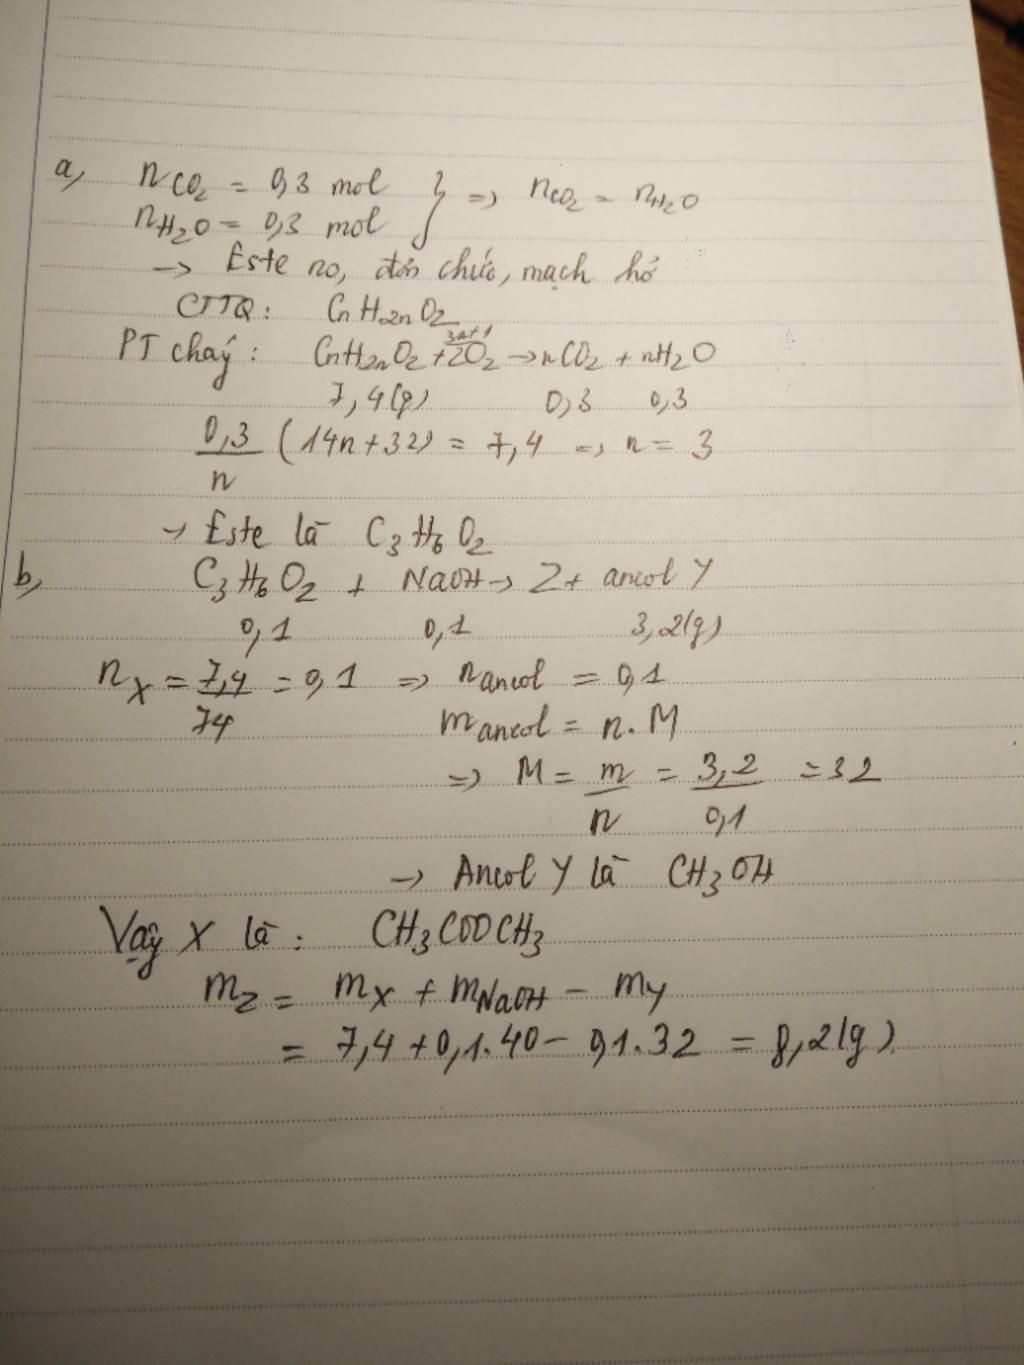 a, nCO2 = 0,3 mol } => nCO2 = nH2O
nH2O = 0,3 mol
-> Este no, đơn chức, mạch hở
CTTQ: CnH2nO2
PT cháy: CnH2nO2 + 3n+1/2O2 -> nCO2 + nH2O
7,4(g) 0,3 0,3
0,3/n (14n+32) = 7,4 => n = 3
-> Este là C3H6O2
b, C3H6O2 + NaOH -> Z + ancol Y
0,1 0,1 3,2(g)
nX = 7,4/74 = 0,1 => nancol = 0,1
mancol = n.M
=> M = m/n = 3,2/0,1 = 32
-> Ancol Y là CH3OH
Vậy X là: CH3COOCH3
mZ = mX + mNaOH - mY
= 7,4 + 0,1.40 - 0,1.32 = 8,2(g)